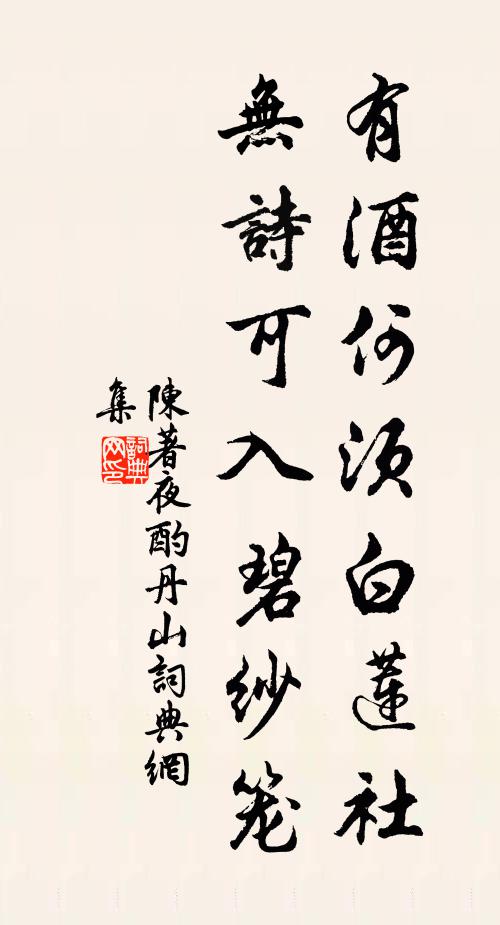 有酒何须白蓮社
無詩可入碧紗笼
陳著夜酌丹山詞典網
集
詞典網印